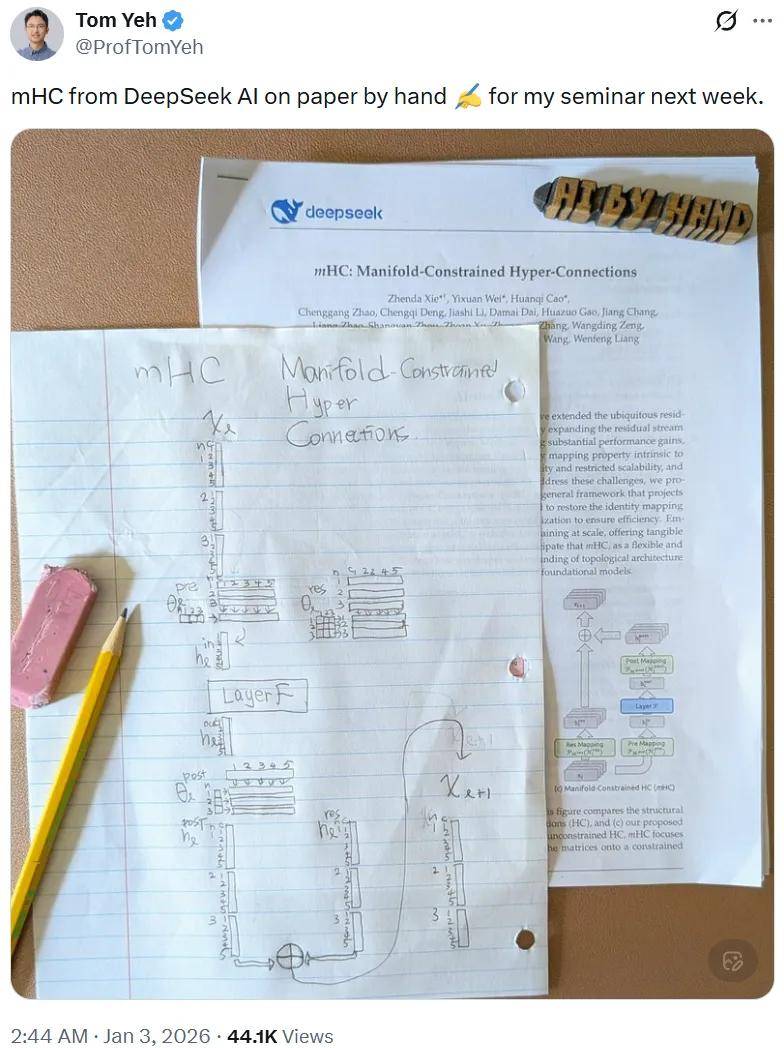 Tom Yeh
@ProfTomYeh
mHC from DeepSeek AI on paper by hand ✍️ for my seminar next week.
deepseek
AI BY HAND
mHC: Manifold-Constrained Hyper-Connections
Zhenda Xie*†, Yixuan Wei*, Huanqi Cao*,
Chenggang Zhao, Chengqi Deng, Jiashi Li, Damai Dai, Huazuo Gao, Jiang Chang,
Liang Zhao, Shangyan Zhou, Zhean Xu, Zhang, Wangding Zeng,
Wang, Wenfeng Liang
extended the ubiquitous resid-
expanding the residual stream
substantial performance gains,
mapping property intrinsic to
and restricted scalability, and
dress these challenges, we pro-
general framework that projects
to restore the identity mapping
ization to ensure efficiency. Em-
aining at scale, offering tangible
ipate that mHC, as a flexible and
nding of topological architecture
foundational models.
Post Mapping
Layer F
Res Mapping
Pre Mapping
(c) Manifold-Constrained HC (mHC)
is figure compares the structural
ions (HC), and (c) our proposed
unconstrained HC, mHC focuses
he matrices onto a constrained
mHC Manifold-Constrained
Hyper
Connections
xℓ
n c
1 1 2 3 4 5
2 1 2 3 4 5
3 1 2 3 4 5
pre
θℓ
1 2 3 4 5
res
θℓ
in
hℓ
Layer F
out
hℓ
1 2 3 4 5
post
θℓ
1
2
3
post
hℓ
res
hℓ
xℓ+1
n c
1
2
3
⊕
2:44 AM · Jan 3, 2026 · 44.1K Views